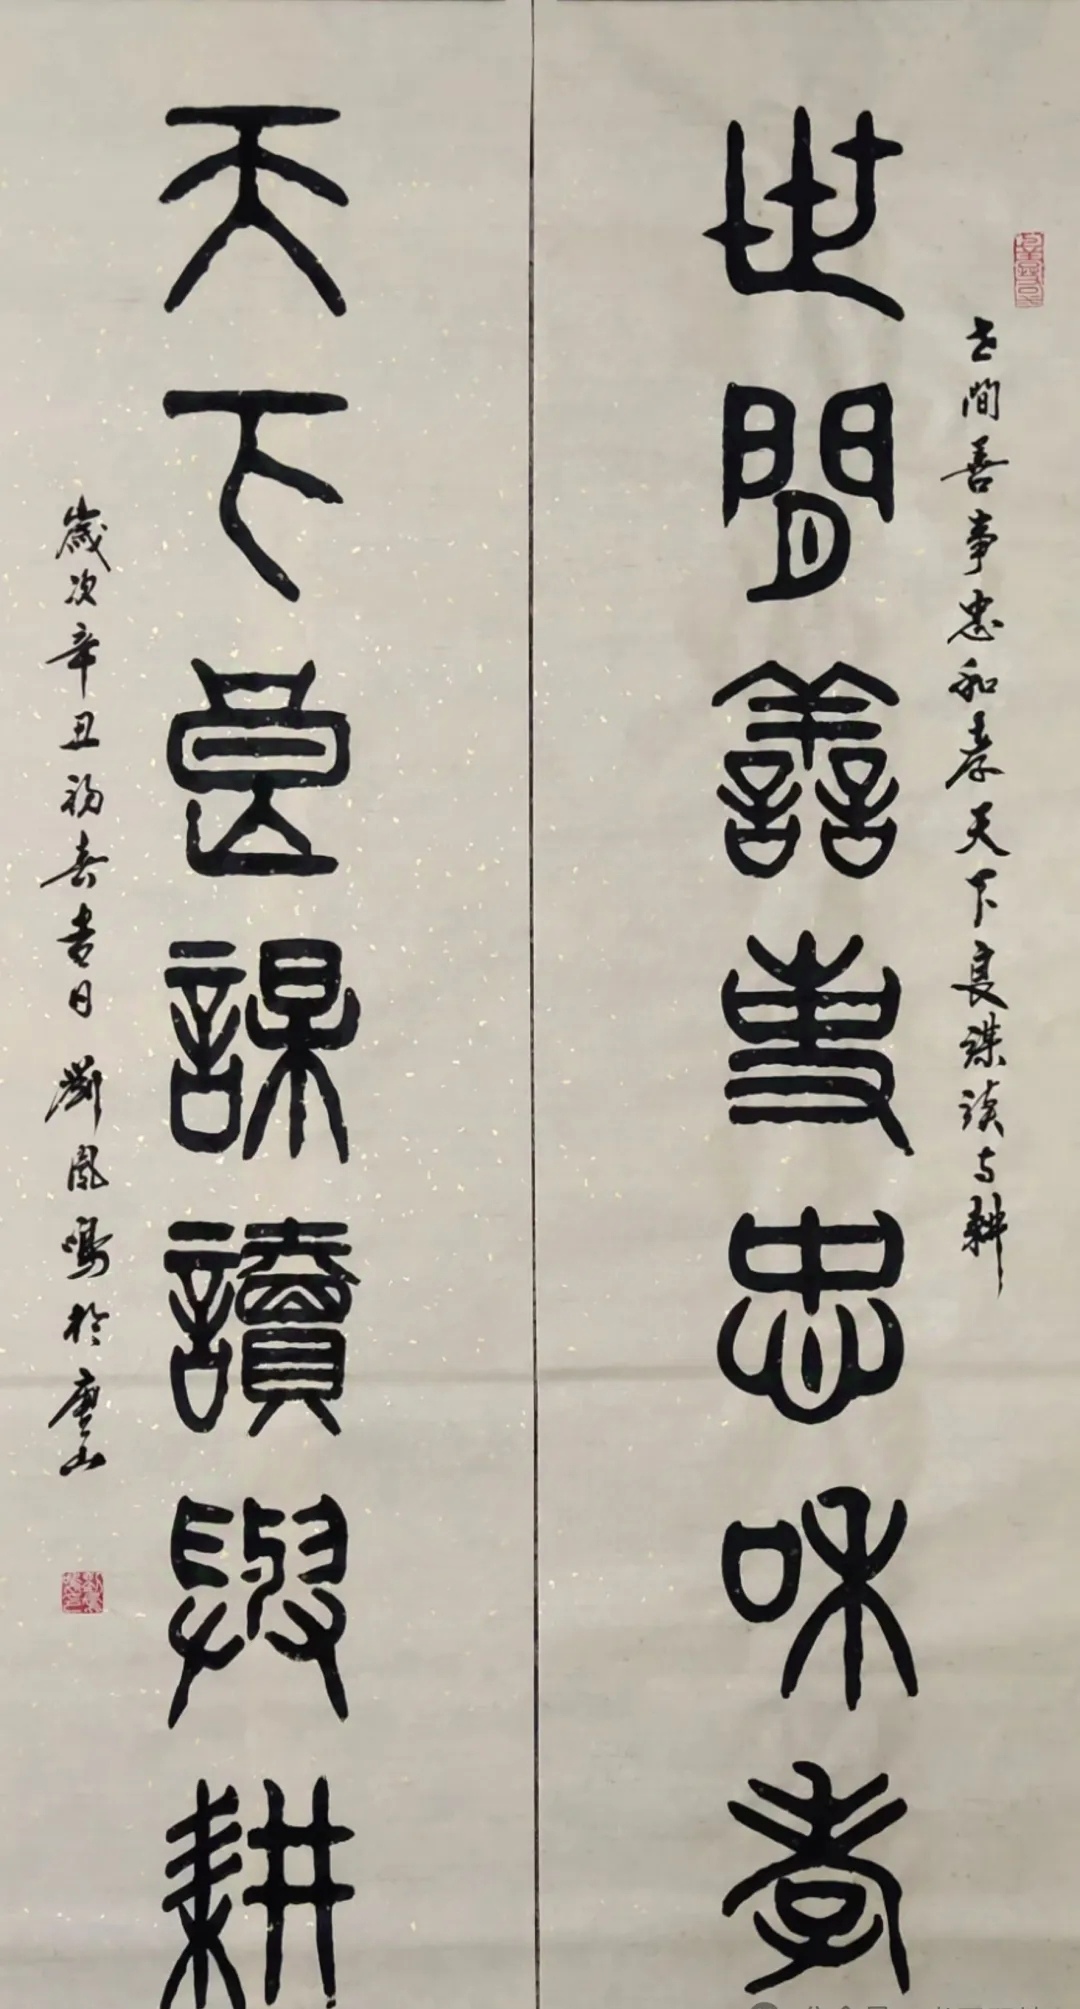 世間善事忠和孝天下良謀讀与耕
世間善事忠和孝
天下良謀讀與耕
歲次辛丑初春吉日劉鳳鳴於唐山